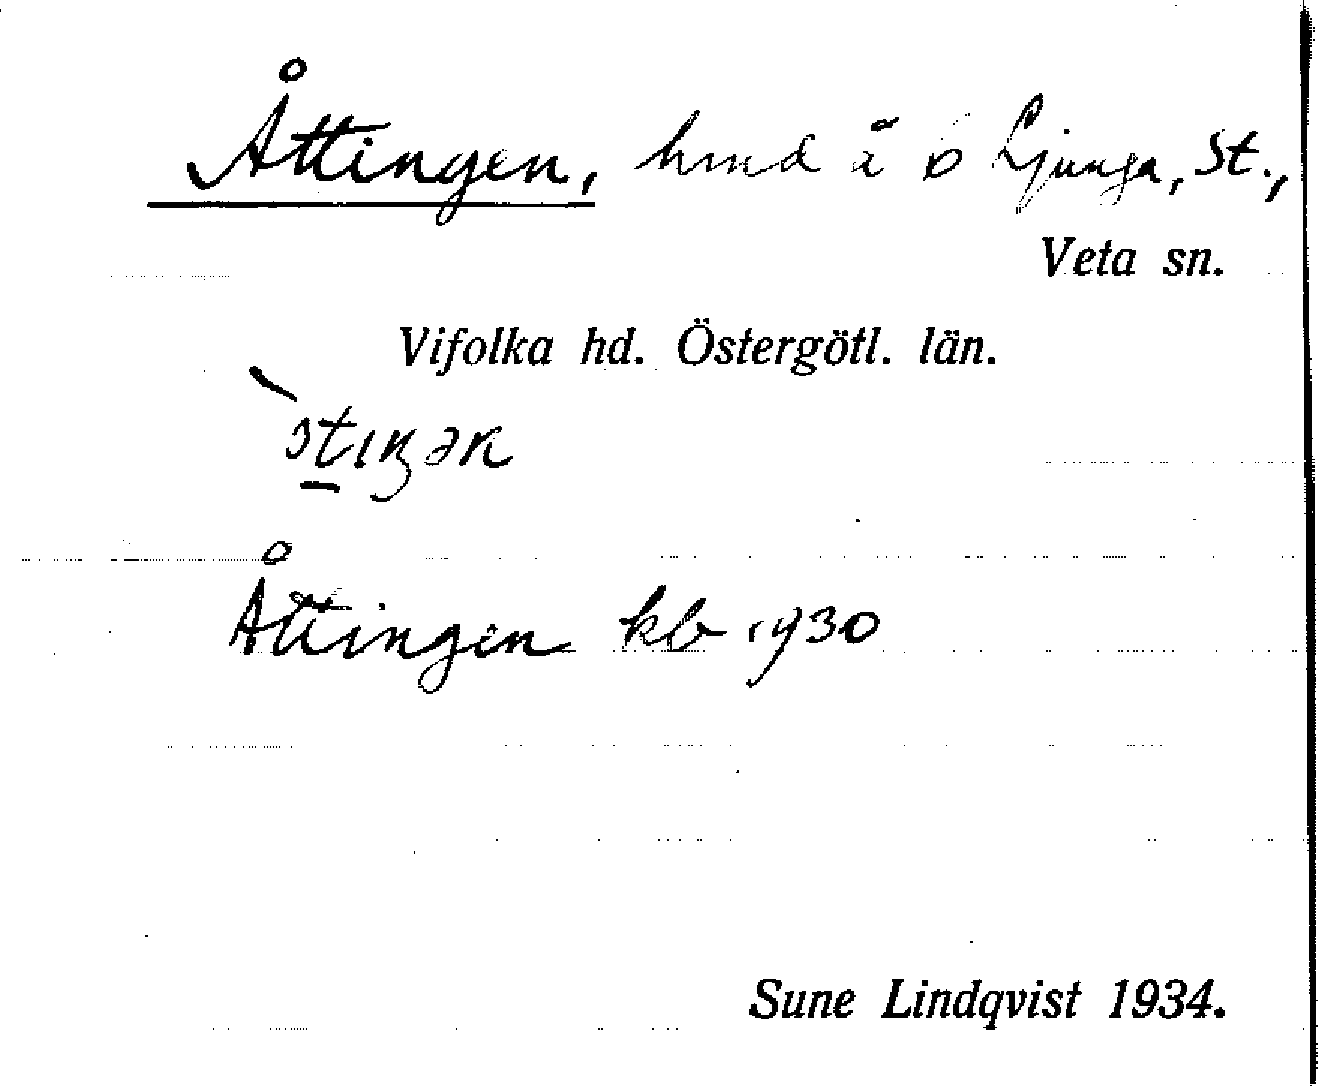 Åttingen, hmd å Ö Ljunga, St.,
Veta sn.
Vifolka hd. Östergötl. län.
Åttingen kb 1930
Sune Lindqvist 1934.